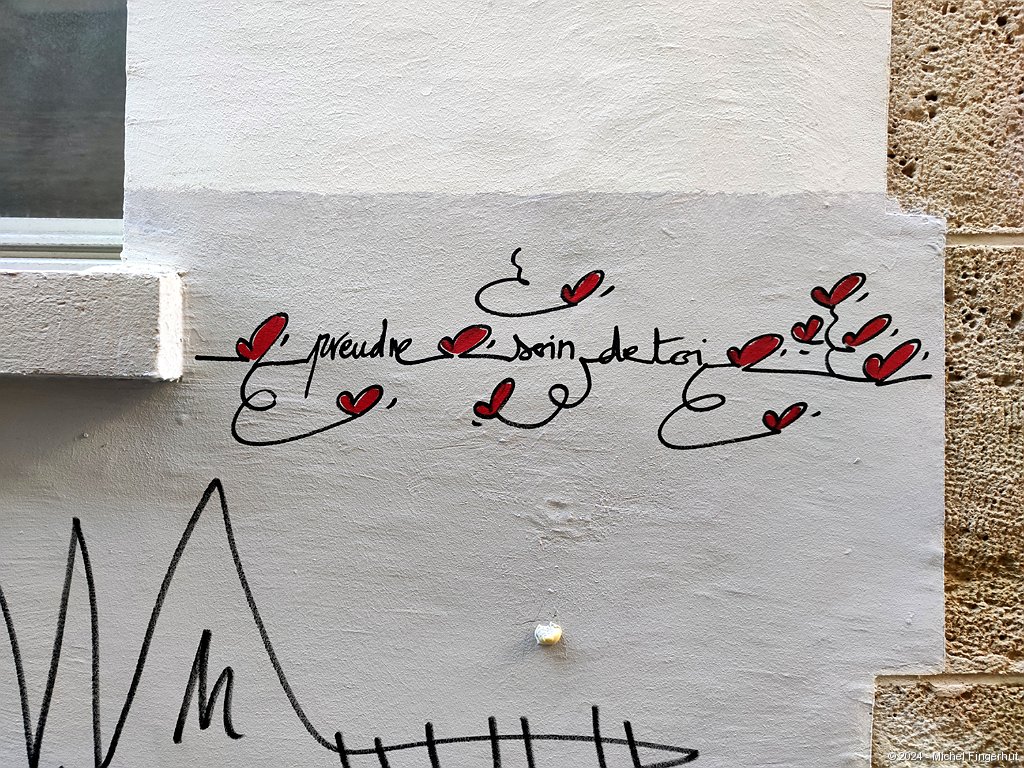 prendre soin de toi
© 2024 - Michel Fingerhut